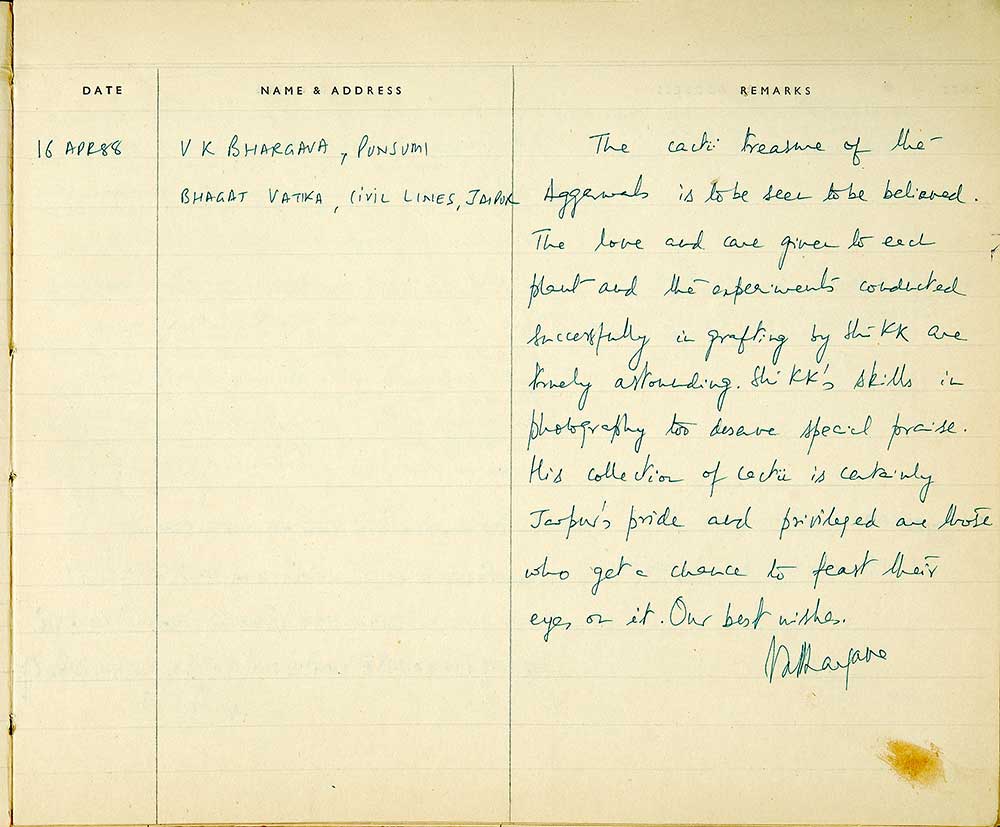 DATE NAME & ADDRESS REMARKS
16 APR 88 V K BHARGAVA, PUNSUMI The cactii treasure of the
BHAGAT VATIKA, CIVIL LINES, JAIPUR Aggarwals is to be seen to be believed.
The love and care given to each
plant and the experiments conducted
successfully in grafting by Shri KK are
truely astounding. Shri KK's skills in
photography too deserve special praise.
His collection of cactii is certainly
Jaipur's pride and privileged are those
who get a chance to feast their
eyes on it. Our best wishes.
VKBhargava